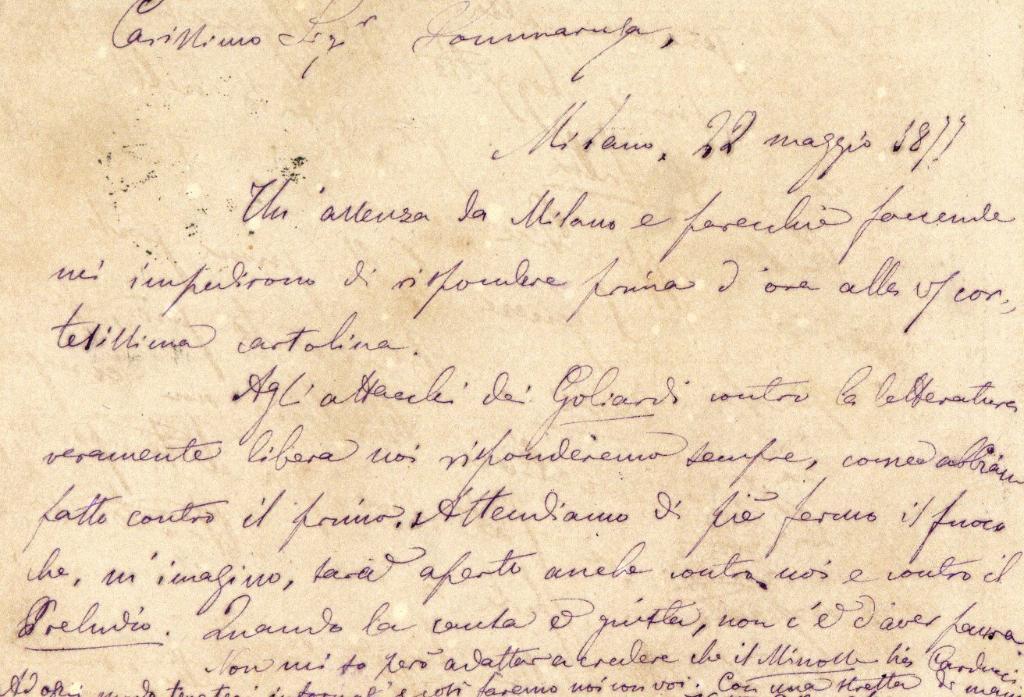 Carissimo Sigr Sommaruga,
Milano, 22 maggio 1877
Un'assenza da Milano e parecchie faccende
mi impedirono di rispondere prima d'ora alla v/ cor-
tesissima cartolina.
Agli attacchi dei Goliardi contro la letteratura
veramente libera noi risponderemo sempre, come abbiam
fatto contro il primo. Attendiamo di piè fermo il fuoco
che, m'imagino, sarà aperto anche contro noi e contro il
Preludio. Quando la causa è giusta, non c'è d'aver paura.
Non mi so però adattar a credere che il Minosse sia Carducci.
Ad ogni modo tenetemi informati e così faremo noi con voi. Con una stretta di mano